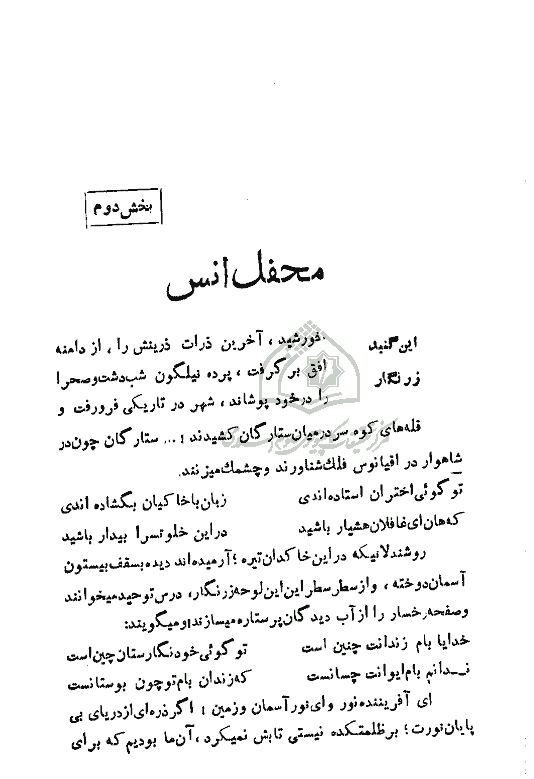 بخش دوم
محفل انس
این گنبد
زرنگار
خورشید، آخرین ذرات ذرینش را، از دامنه
افق برگرفت، پرده نیلگون شب دشت وصحرا
را درخود پوشاند، شهر در تاریکی فرورفت و
قله‌های کوه سردرمیان ستارگان کشیدند؛... ستارگان چون در
شاهوار در اقیانوس فلك شناورند وچشمك میزنند.
توگوئی اختران استاده‌اندی زبان باخاکیان بگشاده اندی
که هان ای غافلان هشیار باشید دراین خلوتسرا بیدار باشید
روشندلانیکه دراین خاکدان تیره؛ آرمیده‌اند دیده بسقف بیستون
آسمان دوخته، وازسطرسطراین این لوحه زرنگار، درس توحید میخوانند
وصفحه رخسار را از آب دیدگان پرستاره میسازند ومیگویند:
خدایا بام زندانت چنین است توگوئی خودنگارستان چین است
نـدانم بام ایوانت چسانست که زندان بام توچون بوستانست
ای آفریننده نور وای نور آسمان وزمین؛ اگر ذره‌ای ازدریای بی
پایان نورت؛ برظلمتکده نیستی تابش نمیکرد، آن ما بودیم که برای